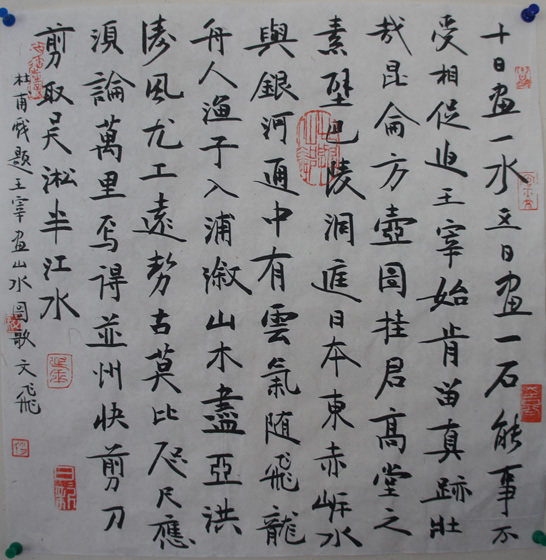 十日画一水五日画一石能事不
受相促迫王宰始肯留真跡壯
哉昆侖方壺圖挂君高堂之
素壁巴陵洞庭日本東赤岸水
與銀河通中有雲氣随飛龍
舟人漁子入浦溆山木盡亞洪
涛風尤工遠勢古莫比咫尺應
須論萬里焉得並州快剪刀
剪取吴淞半江水
杜甫戏題王宰画山水圖歌 文飛